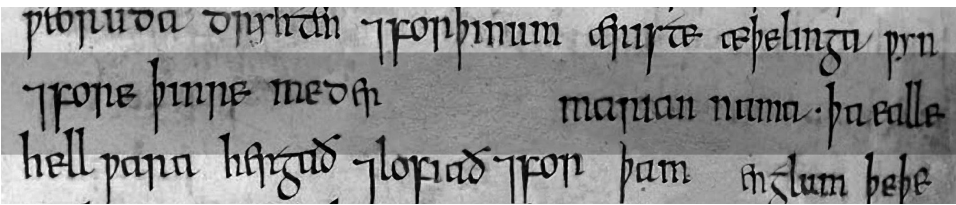 ƿeoruda dryhten ⁊for þinum æriste æþelinga ƿyn
⁊fore þinre meder marian nama · þa ealle
hell ƿara hergað ⁊lofiað ⁊for þam englum þe þe